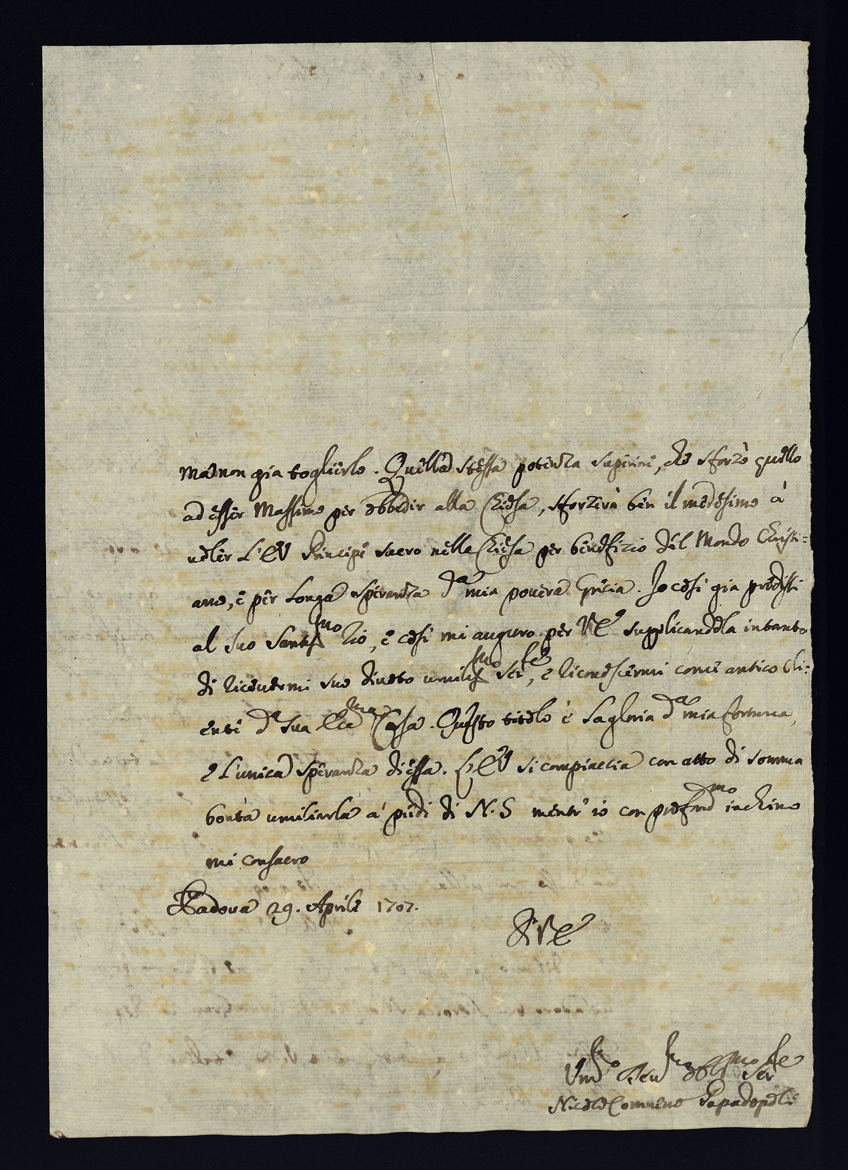 mà non gia toglierlo. Quella stessa potenza superiore, che sforzò quello
ad esser Massimo per obbedir alla Chiesa, sforzerà ben il medesimo à
voler L'EV Principe sacro nella Chiesa per benefizio del Mondo Christi=
ano, è per longa speranza dª mia povera Grecia. Io così gia predissi
al suo Santissmo Zio, è così mi auguro per VE supplicandola intanto
di ricevermi suo divoto umilissmo serre, è riconoscermi come antico cli=
ente dª sua Eccma Casa. Questo titolo è la gloria dª mia fortuna,
e l'unica speranza di essa. L'EV si compiaccia con atto di somma
bontà umiliarla a' piedi di N.S mentr' io con profondmo inchino
mi consacro
Padova 29. Aprile 1707.
Di VE
Nicolo Comneno Papadopoli